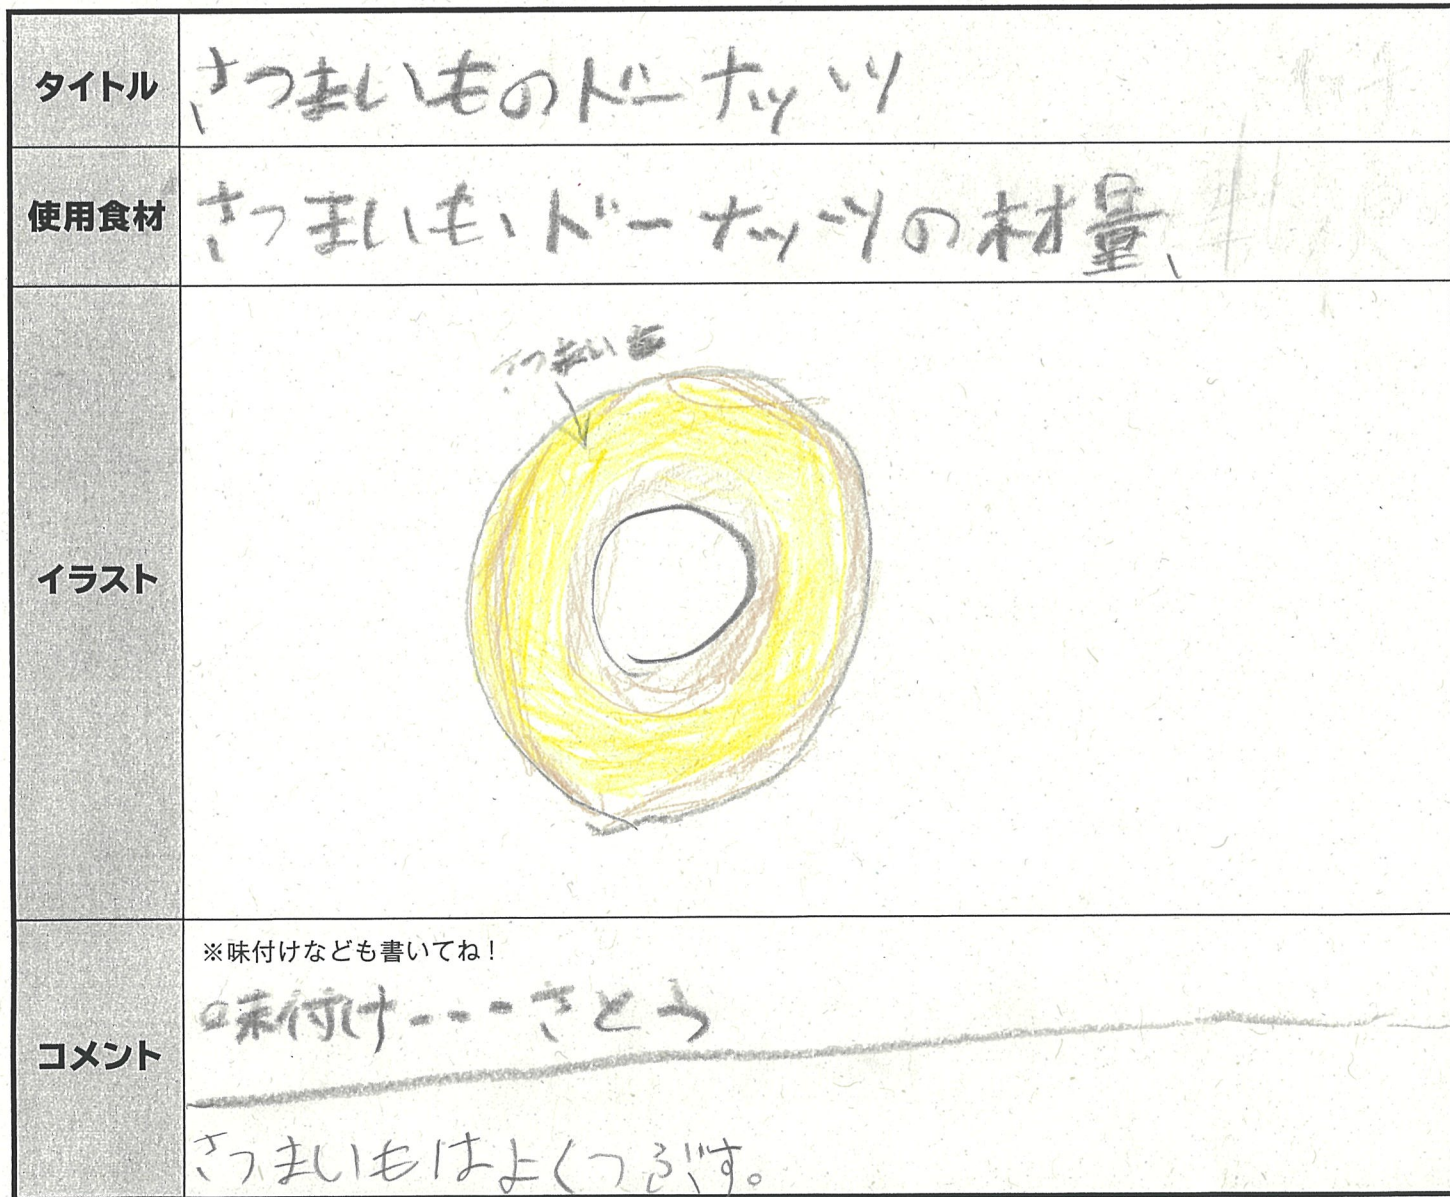 タイトル
さつまいものドーナッツ
使用食材
さつまいも、ドーナッツの材量、
イラスト
さつまいも
コメント
※味付けなども書いてね！
味付け---さとう
さつまいもはよくつぶす。